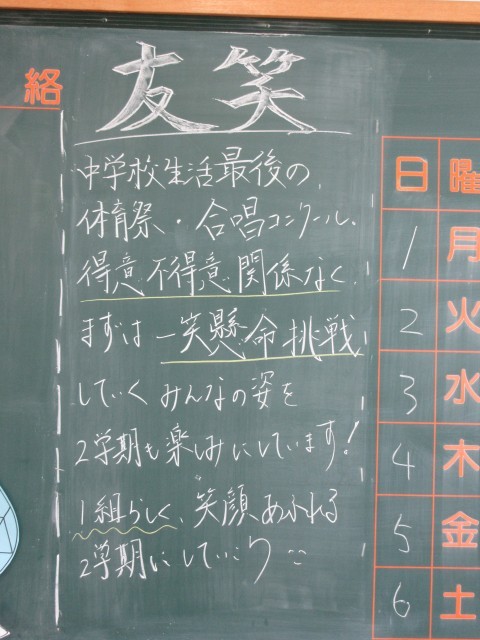 絡
友笑
中学校生活最後の、
体育祭・合唱コンクール、
得意不得意関係なく、
まずは一笑懸命挑戦
していくみんなの姿を
2学期も楽しみにしています!
1組らしく、笑顔あふれる
2学期にしていこう
日 曜
1 月
2 火
3 水
4 木
5 金
6 土